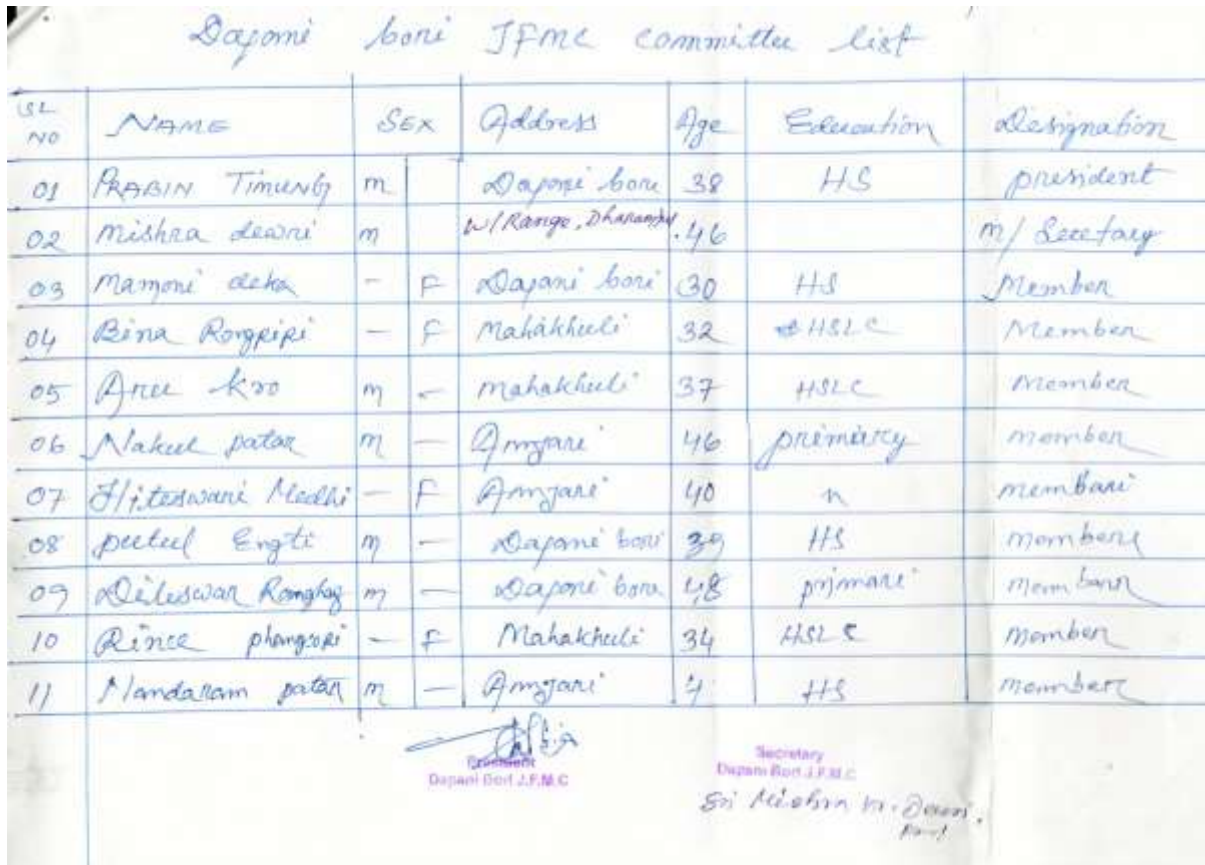 Dapomi bori JFMC committee list
SL NO NAME SEX Address Age Education Designation
01 PRABIN TIMUNG m Daponi bori 38 HS president
02 Mishra dewri m W/Range, 46 m/ Secetary
03 Mamoni deka - F Dapani bori 30 HS Member
04 Bina Rongpipi - F Mahakhuli 32 HSLC Member
05 Anu kro m - Mahakhuli 37 HSLC Member
06 Nakul patar m - Amjari 46 primary member
07 Hiteswari Medhi - F Amjari 40 n membari
08 putul Engti m - Dapomi bori 39 HS member
09 Dileswar m - Daponi bori 48 prjmari member
10 Rince phangcopi - F Mahakhuli 34 HSLC member
11 Nandaram patar m - Amjari 4 HS member
President
Dapani Bori J.F.M.C
Secretary
Dapani Bori J.F.M.C
Sri Mishra